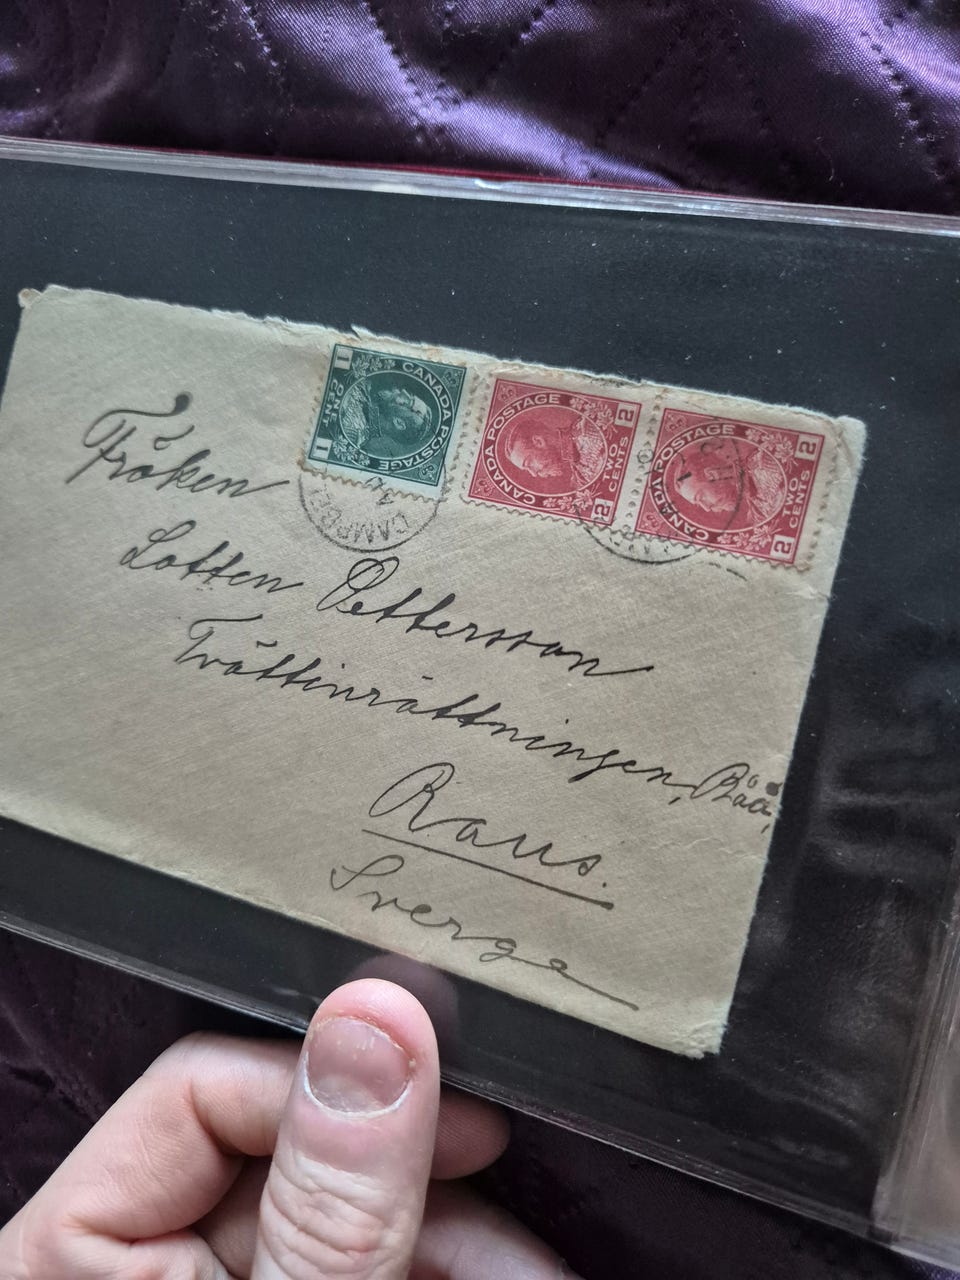 1 CANADA POSTAGE 1
ONE CENT
2 CANADA POSTAGE 2
TWO CENTS
2 CANADA POSTAGE 2
TWO CENTS
Fröken
Lotten Pettersson
Tvättinrättningen, Råå,
Raus.
Sverga